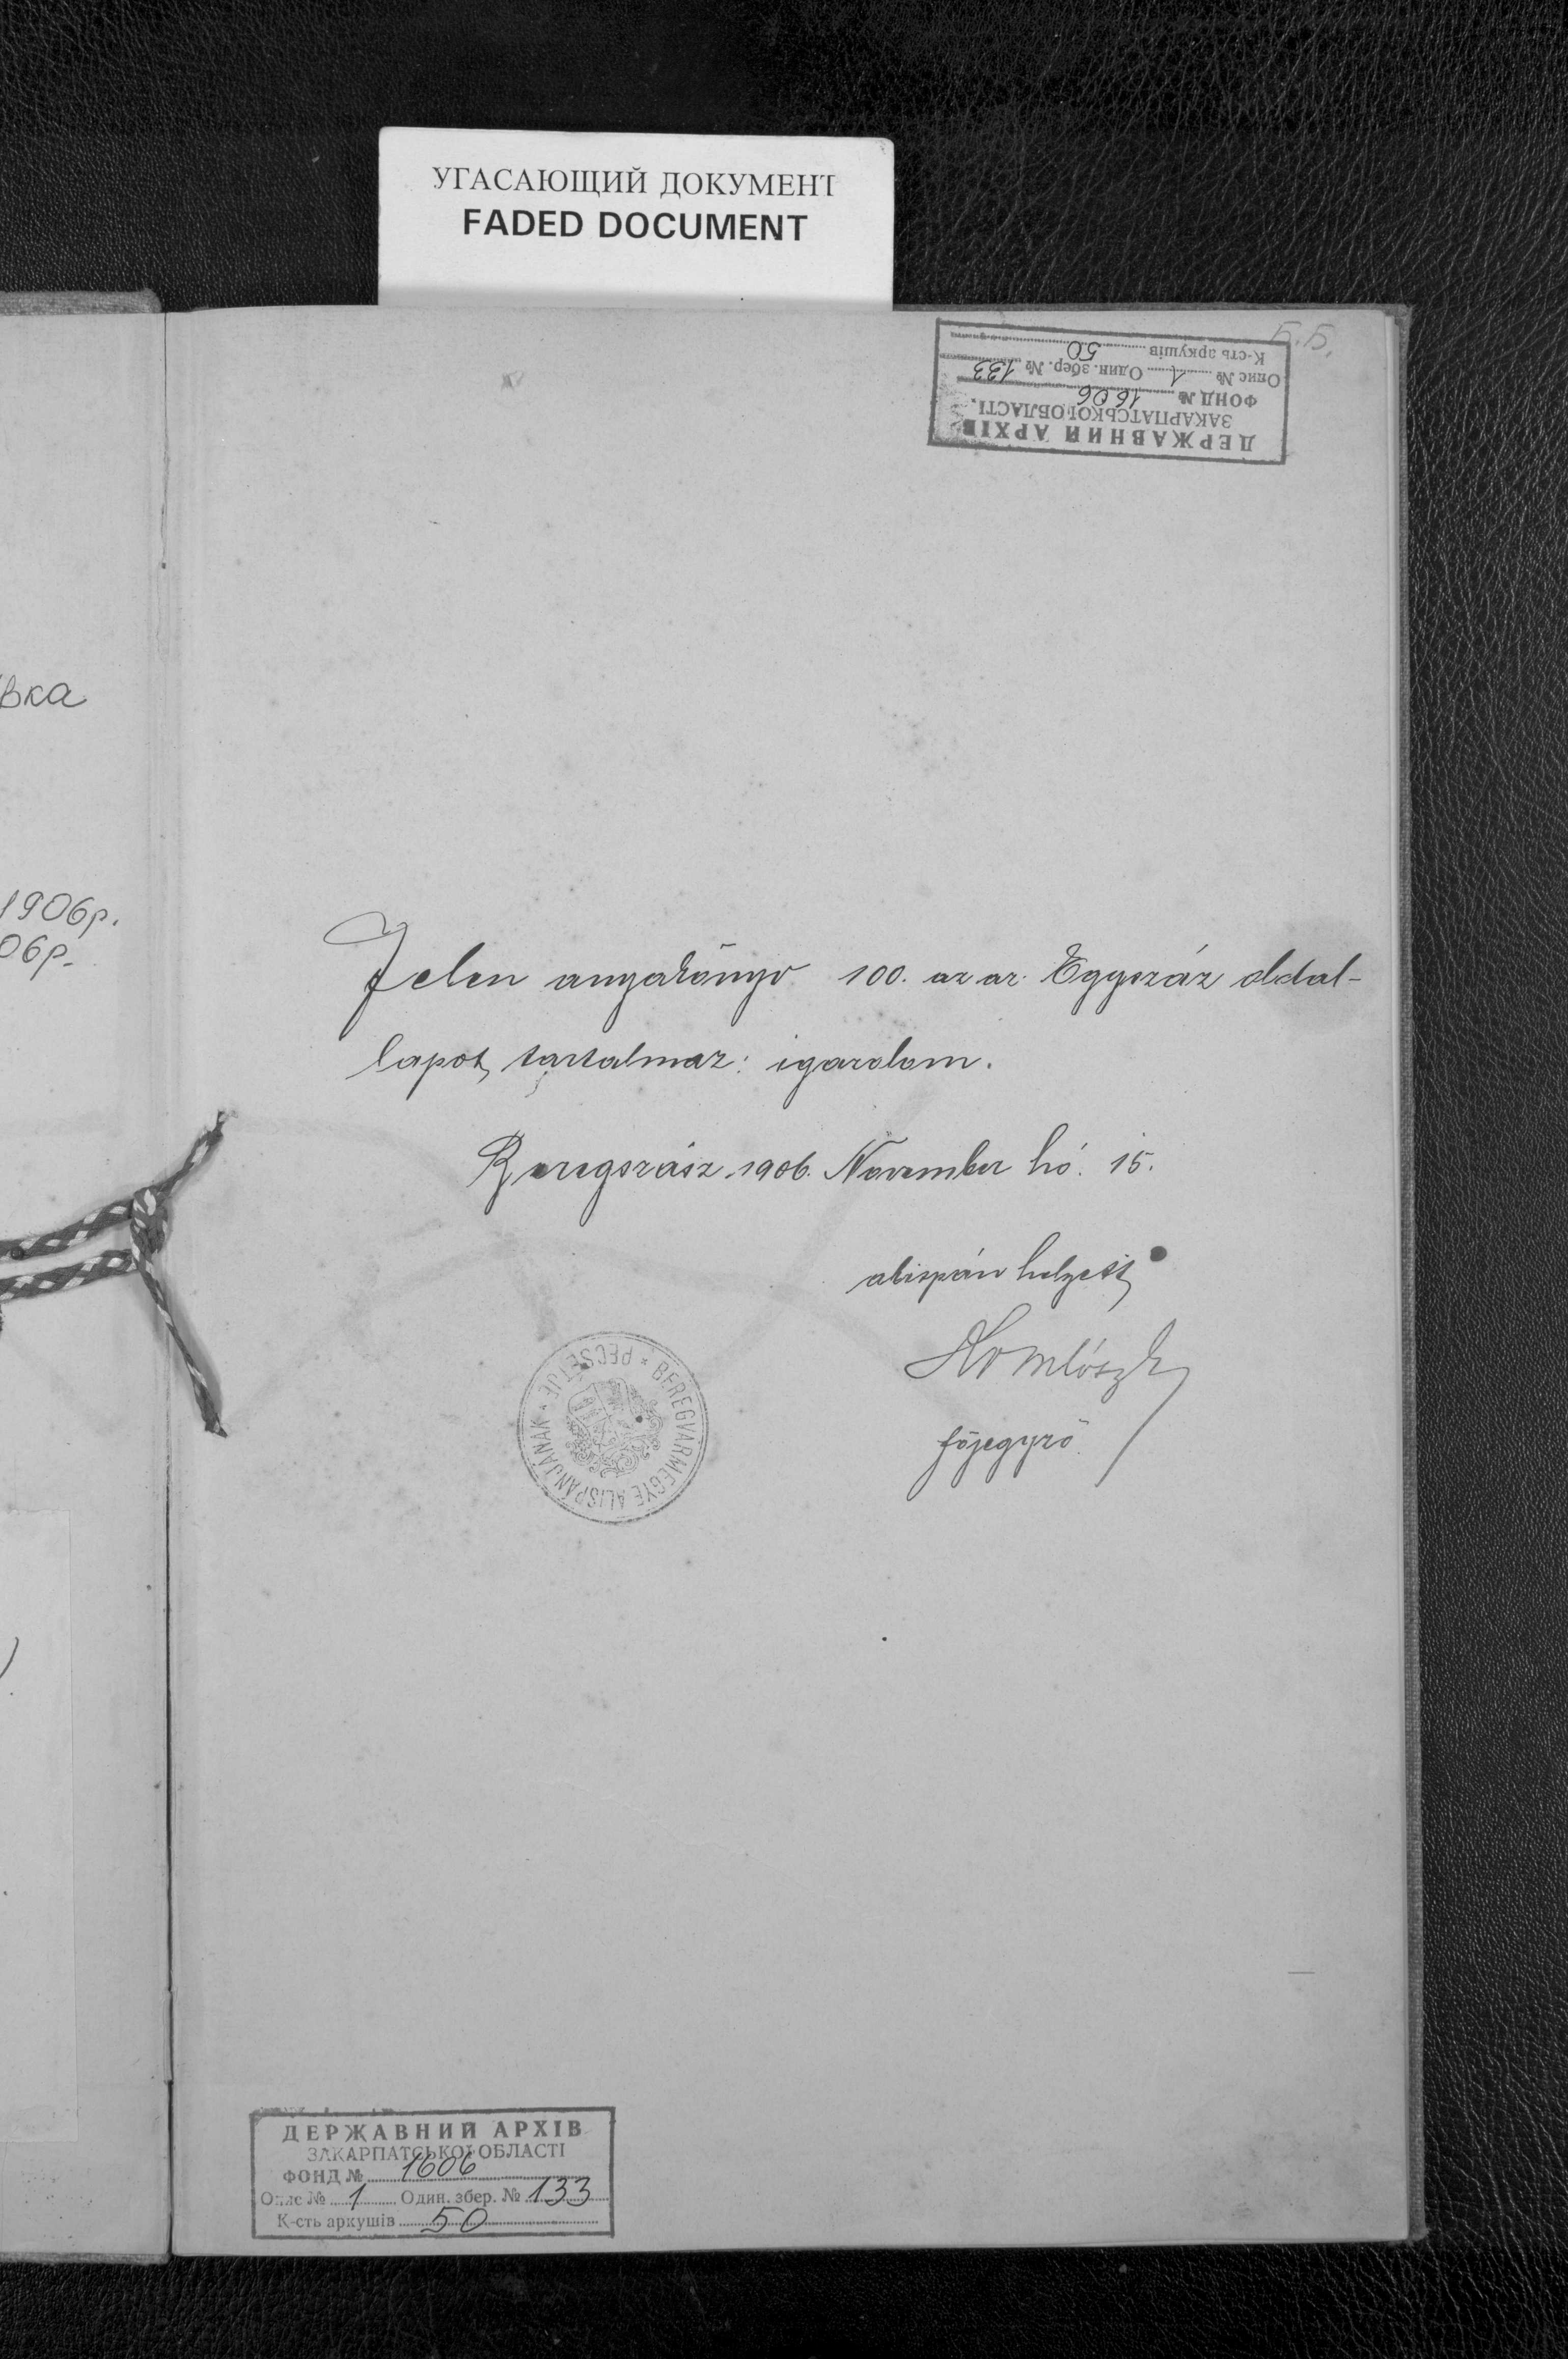 УГАСАЮЩИЙ ДОКУМЕНТ
FADED DOCUMENT
Б.Б.
ДЕРЖАВНИЙ АРХІВ
ЗАКАРПАТСЬКОЇ ОБЛАСТІ
ФОНД № 1606
Опис № 1 Один. збер. № 133
К-сть аркушів 50
вка
1906р.
06р.
Jelen anyakönyv 100. az az. Egyszáz oldal-
lapot tartalmaz: igazolom.
Beregszász. 1906. November hó. 15.
alispán helyett
főjegyző
BEREGVÁRMEGYE ALISPÁNJÁNAK * PECSÉTJE *
ДЕРЖАВНИЙ АРХІВ
ЗАКАРПАТСЬКОЇ ОБЛАСТІ
ФОНД № 1606
Опис № 1 Один. збер. № 133
К-сть аркушів 50